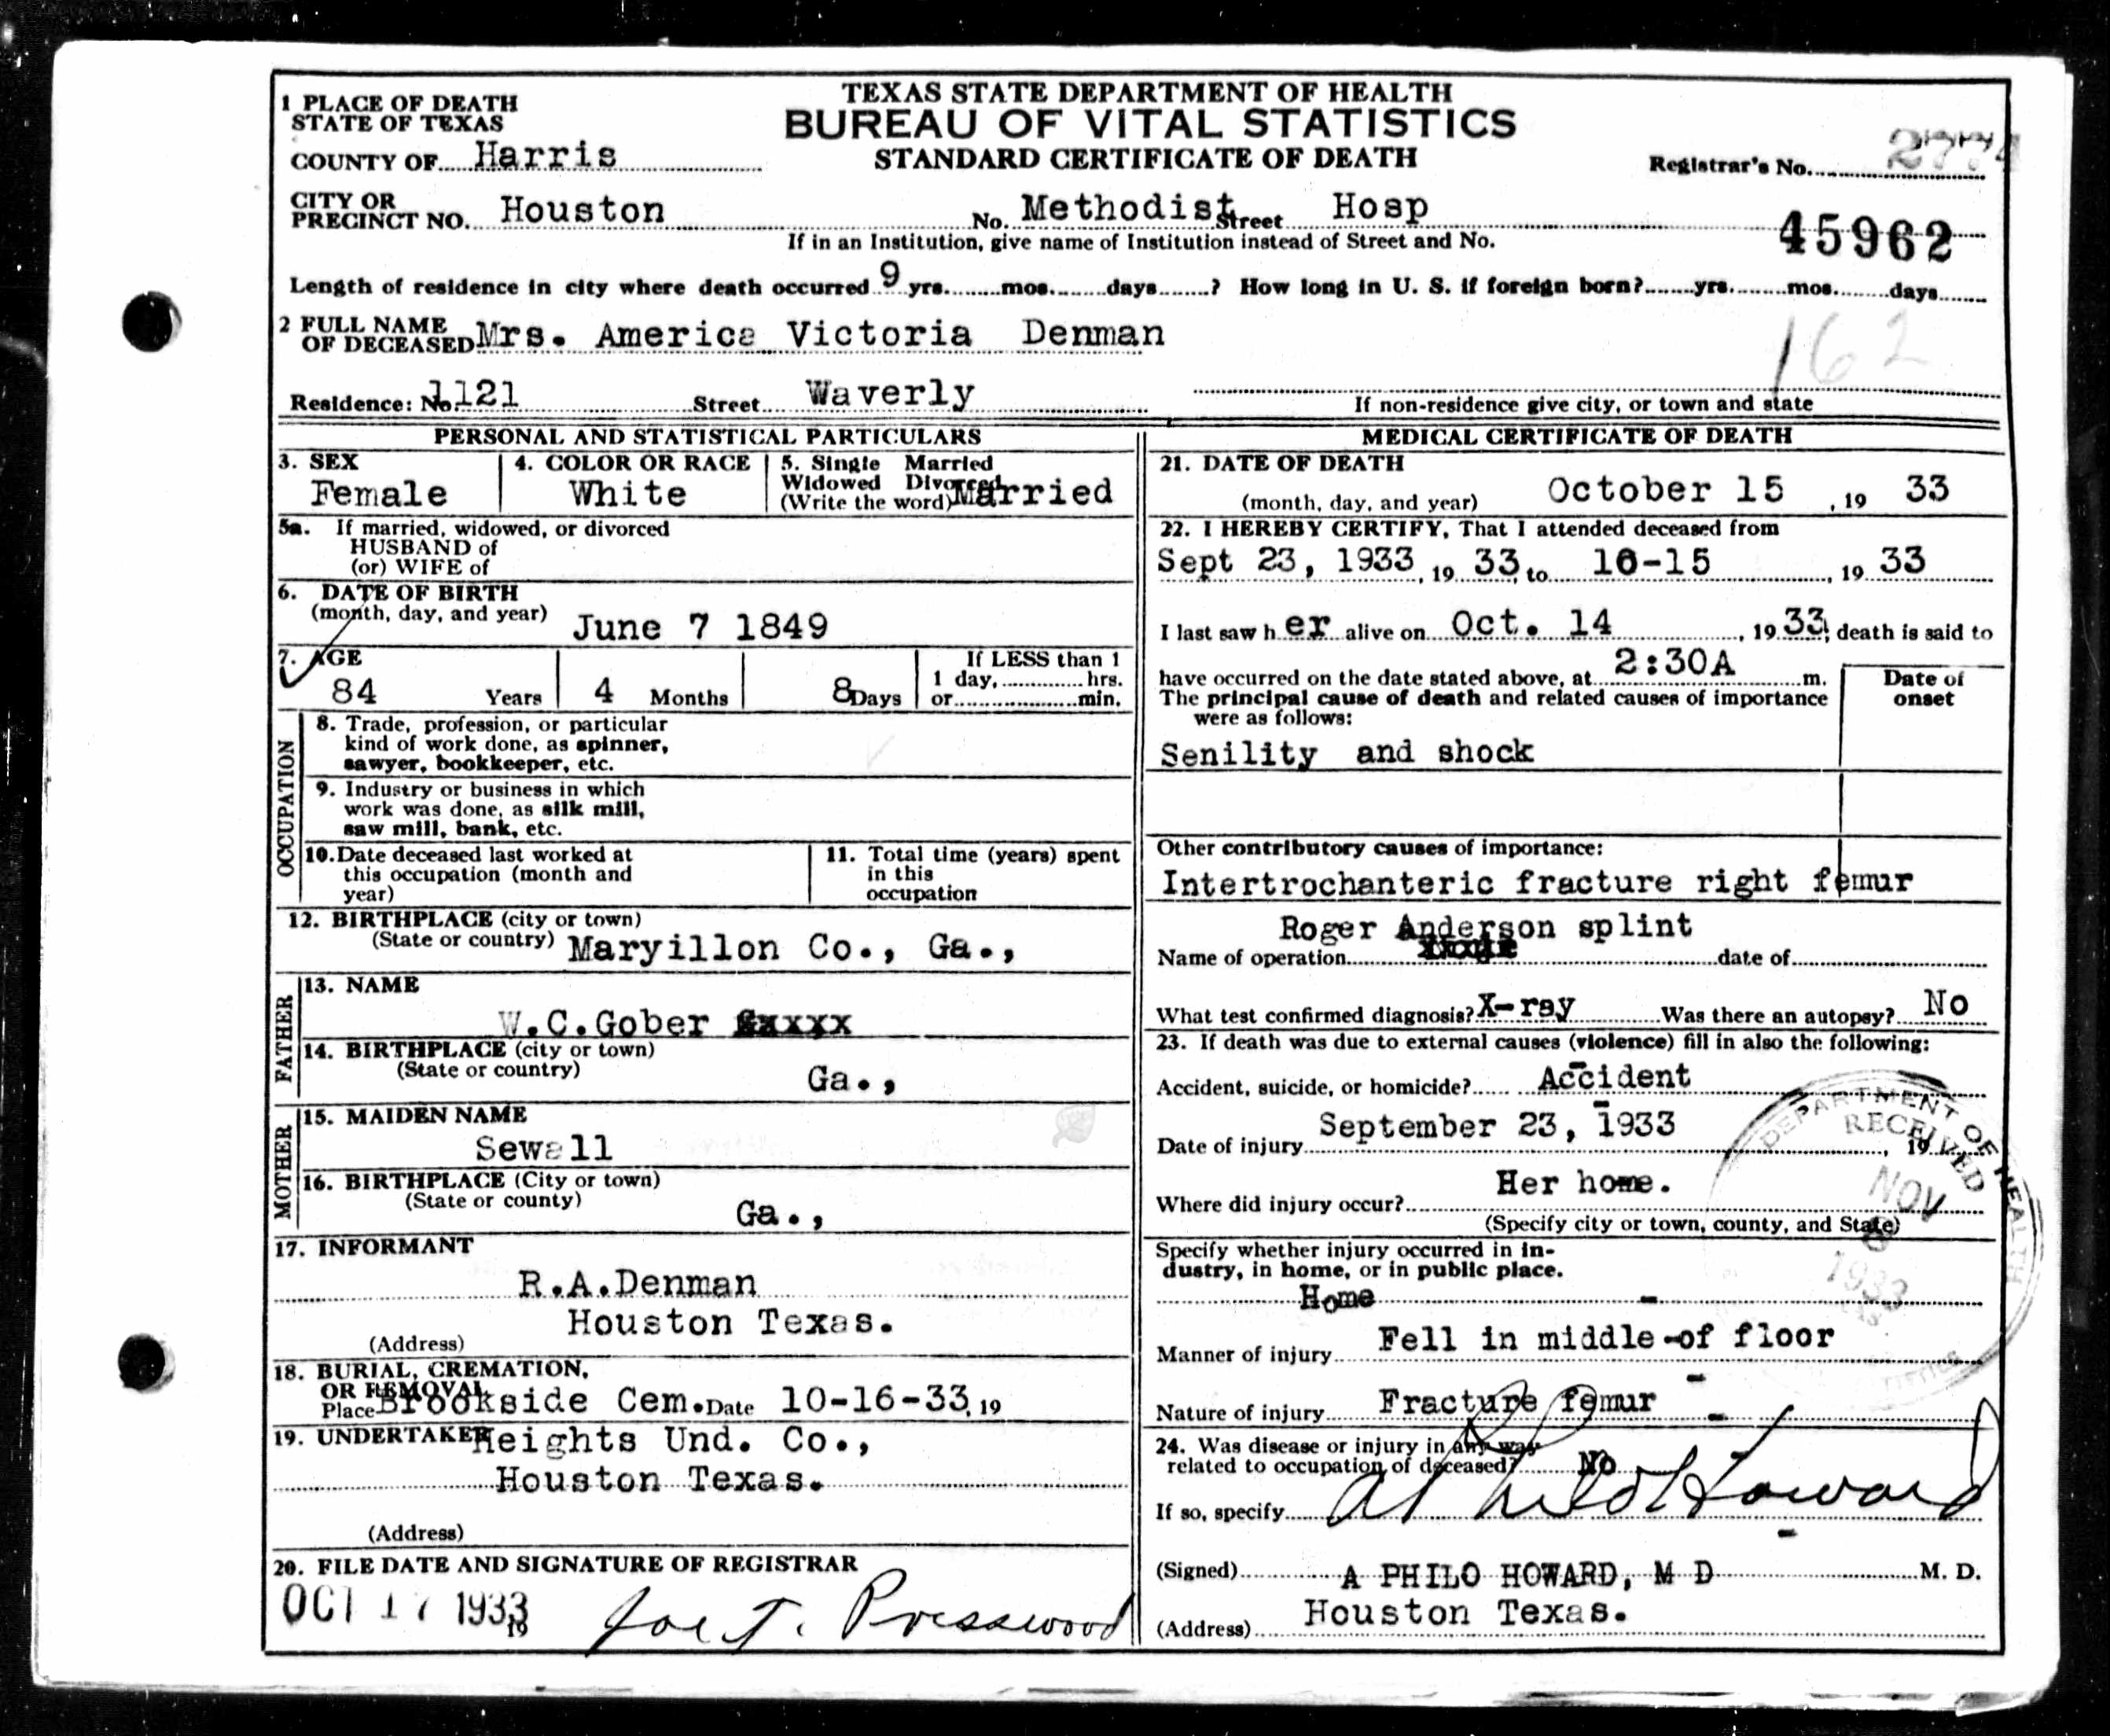 TEXAS STATE DEPARTMENT OF HEALTH
BUREAU OF VITAL STATISTICS
STANDARD CERTIFICATE OF DEATH
1 PLACE OF DEATH
STATE OF TEXAS
COUNTY OF Harris
Registrar's No.
CITY OR
PRECINCT NO. Houston No. Methodist Street Hosp
If in an Institution, give name of Institution instead of Street and No.
45962
Length of residence in city where death occurred 9 yrs. mos. days ? How long in U. S. if foreign born? yrs. mos. days
2 FULL NAME
OF DECEASED Mrs. America Victoria Denman
162
Residence: No. 1121 Street Waverly
If non-residence give city, or town and state
PERSONAL AND STATISTICAL PARTICULARS
3. SEX
Female
4. COLOR OR RACE
White
5. Single Married
Widowed Divorced
(Write the word) Married
5a. If married, widowed, or divorced
HUSBAND of
(or) WIFE of
6. DATE OF BIRTH
(month, day, and year) June 7 1849
7. AGE
84 Years 4 Months 8 Days
If LESS than 1
1 day, hrs.
or min.
OCCUPATION
8. Trade, profession, or particular
kind of work done, as spinner,
sawyer, bookkeeper, etc.
9. Industry or business in which
work was done, as silk mill,
saw mill, bank, etc.
10. Date deceased last worked at
this occupation (month and
year)
11. Total time (years) spent
in this
occupation
12. BIRTHPLACE (city or town)
(State or country) Maryillon Co., Ga.,
FATHER
13. NAME
W.C.Gober
14. BIRTHPLACE (city or town)
(State or country) Ga.,
MOTHER
15. MAIDEN NAME
Sewell
16. BIRTHPLACE (City or town)
(State or county) Ga.,
17. INFORMANT
R.A.Denman
Houston Texas.
(Address)
18. BURIAL, CREMATION,
OR REMOVAL
Place Brookside Cem. Date 10-16-33, 19
19. UNDERTAKER Heights Und. Co.,
Houston Texas.
(Address)
20. FILE DATE AND SIGNATURE OF REGISTRAR
OCT 17 1933 Joe T. Presswood
19
MEDICAL CERTIFICATE OF DEATH
21. DATE OF DEATH
(month, day, and year) October 15 , 19 33
22. I HEREBY CERTIFY, That I attended deceased from
Sept 23, 1933 , 19 33, to 10-15 , 19 33
I last saw h er alive on Oct. 14 , 19 33, death is said to
have occurred on the date stated above, at 2:30A m.
The principal cause of death and related causes of importance
were as follows:
Date of
onset
Senility and shock
Other contributory causes of importance:
Intertrochanteric fracture right femur
Roger Anderson splint
Name of operation date of
What test confirmed diagnosis? X-ray Was there an autopsy? No
23. If death was due to external causes (violence) fill in also the following:
Accident, suicide, or homicide? Accident
Date of injury September 23, 1933 , 19
Where did injury occur? Her home.
(Specify city or town, county, and State)
Specify whether injury occurred in in-
dustry, in home, or in public place.
Home
Manner of injury Fell in middle of floor
Nature of injury Fracture femur
24. Was disease or injury in any way
related to occupation of deceased? No
If so, specify A Philo Howard
(Signed) A PHILO HOWARD, M D M. D.
(Address) Houston Texas.
DEPARTMENT OF HEALTH
RECEIVED
NOV
1933